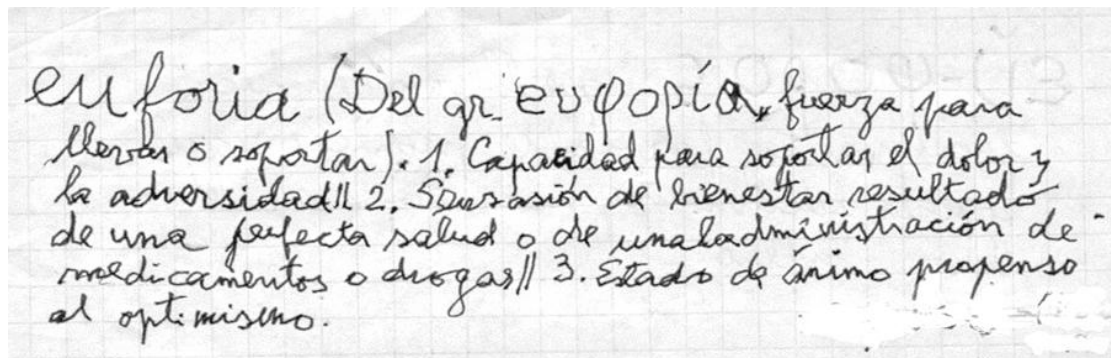 euforia (Del gr. ευφορία, fuerza para
llevar o soportar). 1. Capacidad para soportar el dolor y
la adversidad || 2. Sensasión de bienestar resultado
de una perfecta salud o de una ladministración de
medicamentos o drogas || 3. Estado de ánimo propenso
al optimismo.